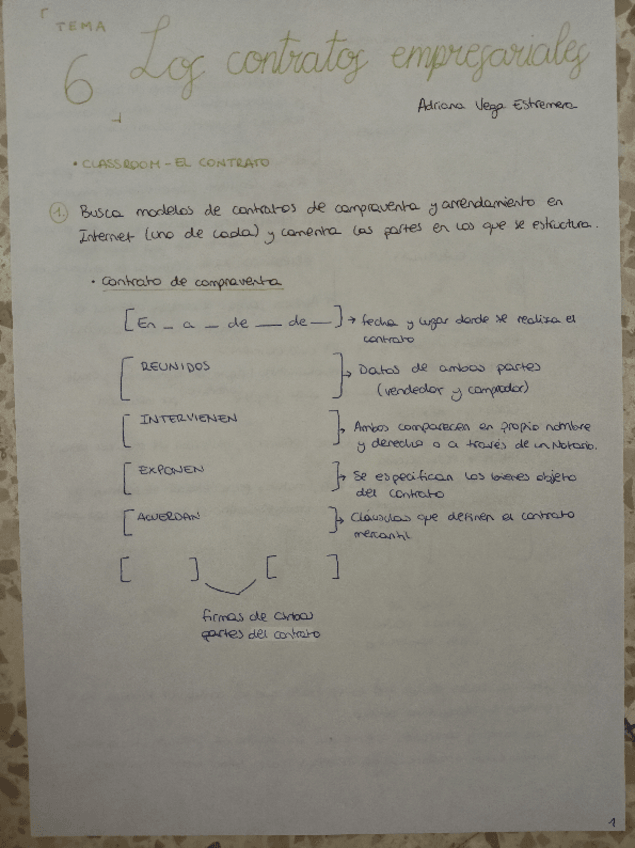 TEMA
6 Los contratos empresariales
Adriana Vega Estremera
• CLASSROOM - EL CONTRATO
1. Busca modelos de contratos de compraventa y arrendamiento en
Internet (uno de cada) y comenta las partes en las que se estructura.
• Contrato de compraventa
[En _ a _ de __ de __] → fecha y lugar donde se realiza el
contrato
[REUNIDOS ] → Datos de ambas partes
(vendedor y comprador)
[INTERVIENEN ] → Ambos comparecen en propio nombre
y derecho o a través de un Notario.
[EXPONEN ] → Se especifican los bienes objeto
del contrato
[ACUERDAN ] → Cláusulas que definen el contrato
mercantil
[ ] [ ]
firmas de ambas
partes del contrato
1